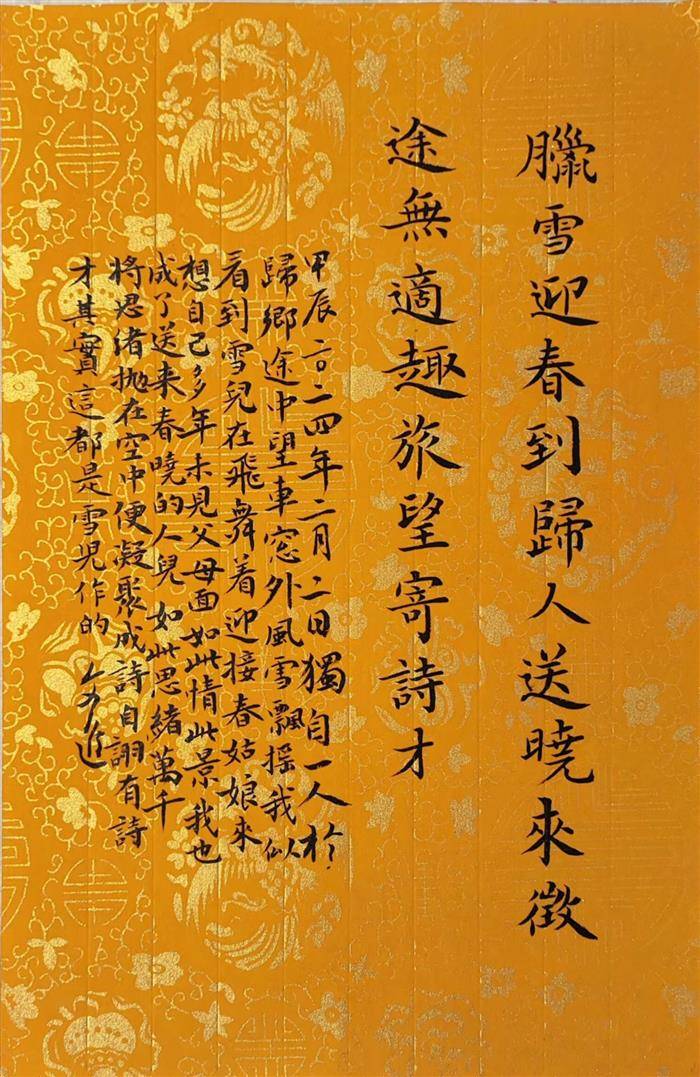 臘雪迎春到歸人送曉來徵
途無適趣旅望寄詩才
甲辰二〇二四年二月二日獨自一人於
歸鄉途中望車窓外風雪飄摇我似
看到雪兒在飛舞着迎接春姑娘來
想自己多年未見父母面如此情此景我也
成了送来春曉的人兒如此思緒萬千
將思緒抛在空中便凝聚成詩自詡有詩
才其實這都是雪児作的